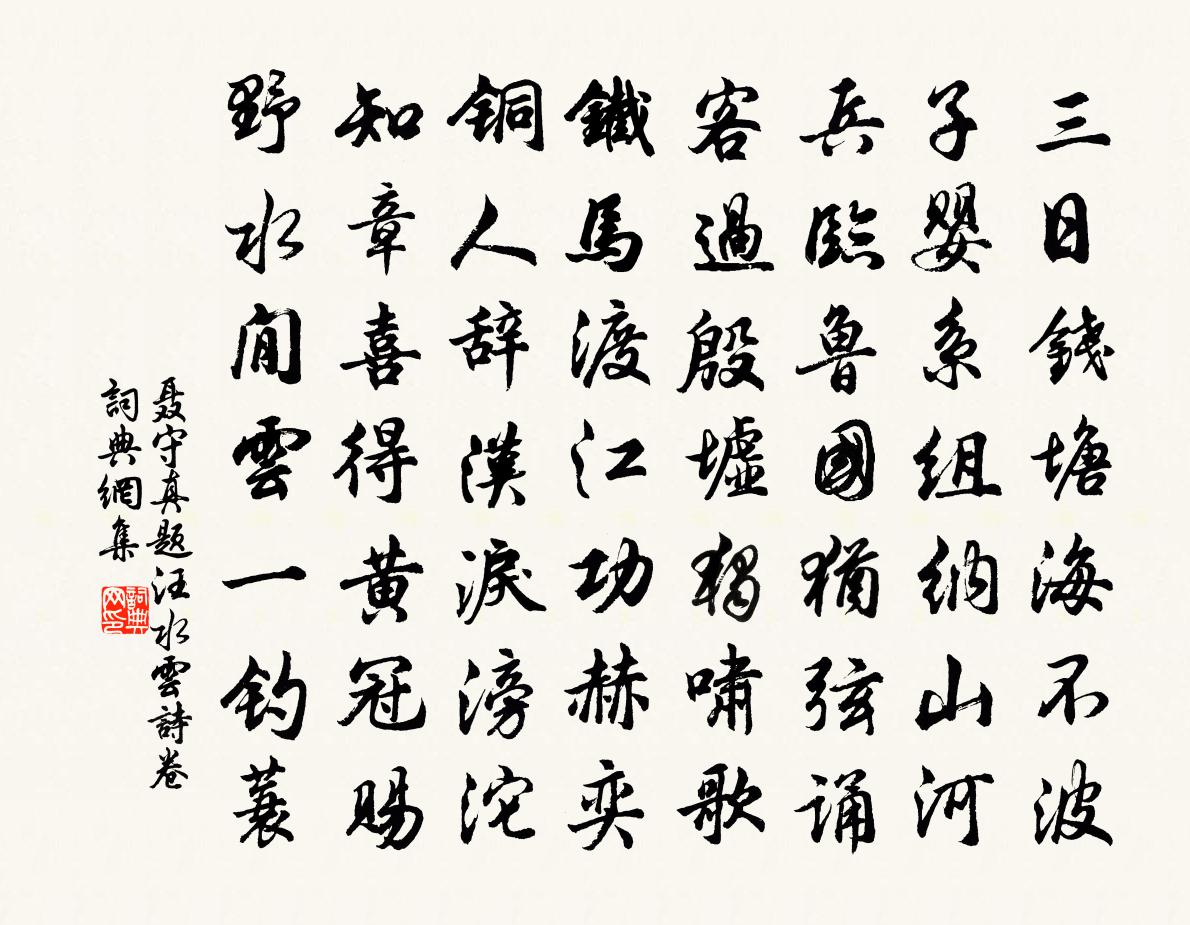 三日錢塘海不波
子嬰系組納山河
兵臨魯國猶弦誦
客過殷墟獨嘯歌
鐵馬渡江功赫奕
銅人辞漢淚滂沱
知章喜得黄冠賜
野水閒雲一釣蓑
聂守真题汪水雲詩卷
詞典網集
詞典网印